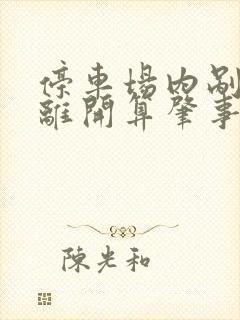 停車場內剐
離開算肇事
陳光和